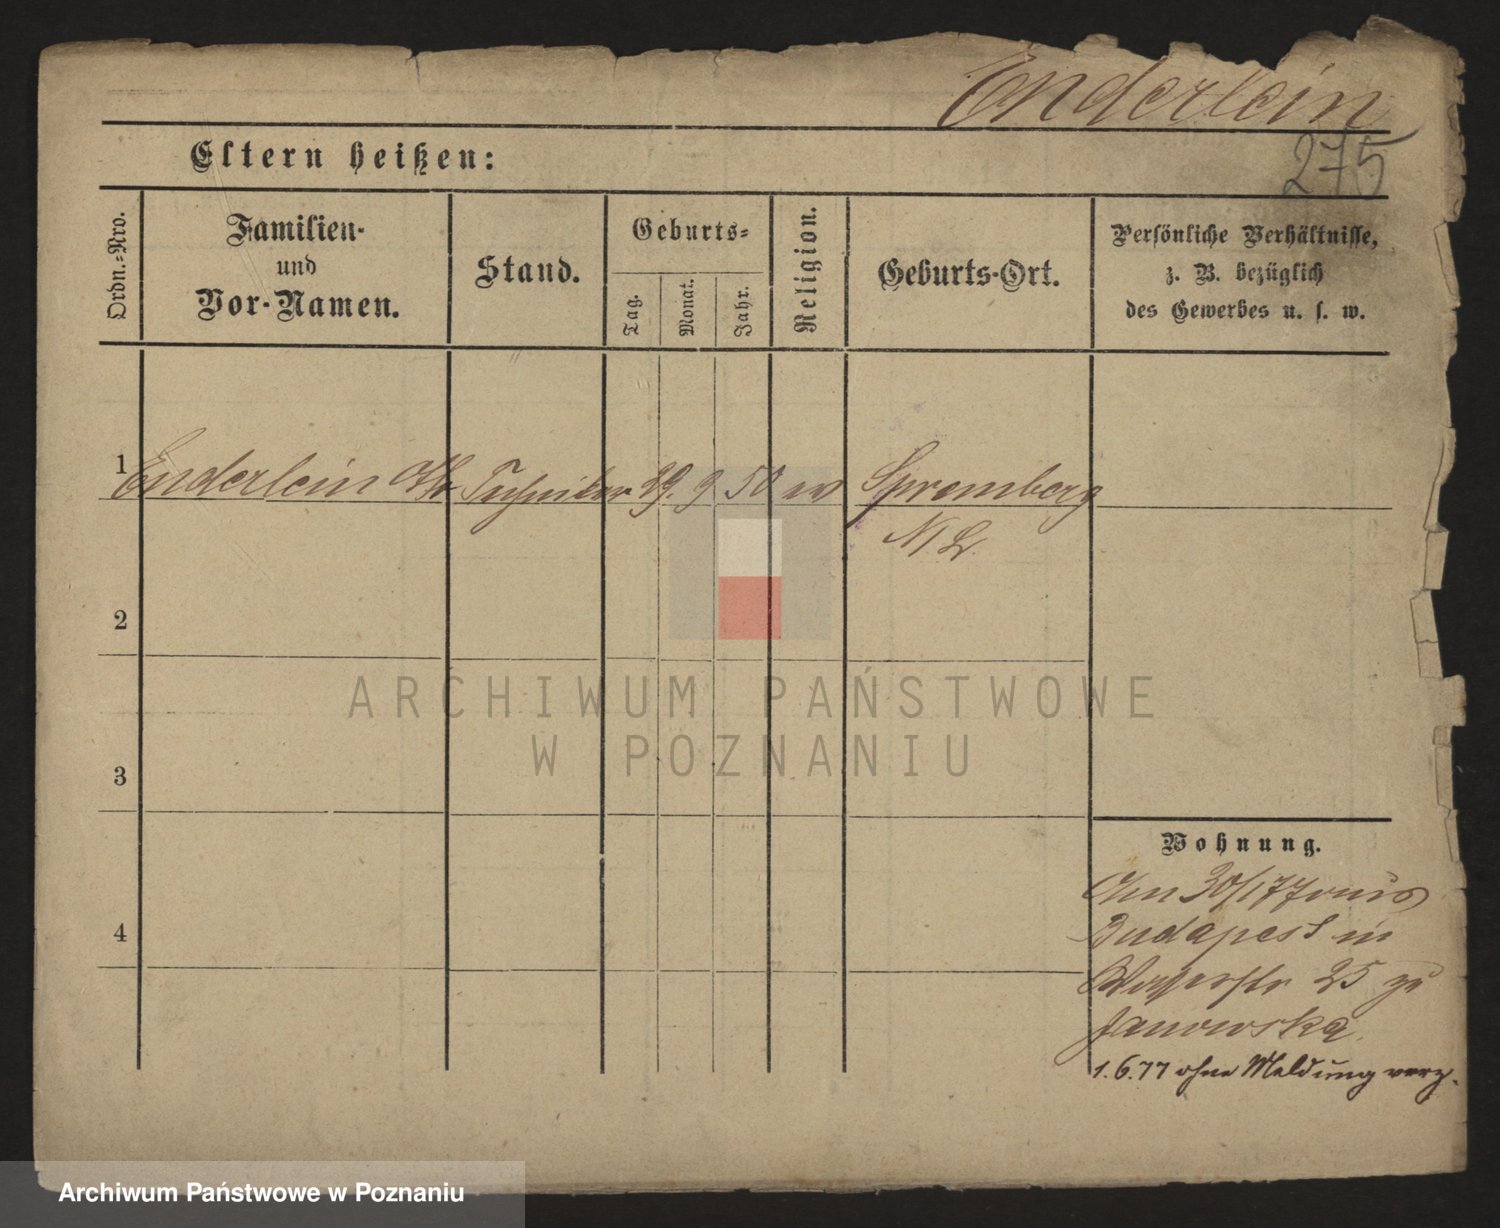 Enderlein
275
Eltern heißen:
Ordn.-Nro.
Familien-
und
Vor-Namen.
Stand.
Geburts-
Tag.
Monat.
Jahr.
Religion.
Geburts-Ort.
Persönliche Verhältnisse,
z. B. bezüglich
des Gewerbes u. s. w.
1 Enderlein Techniker 29. 9 50 ev Spremberg
N/L
2
ARCHIWUM PAŃSTWOWE
W POZNANIU
3
Wohnung.
Am 30/1 77 aus
4
Budapest in
Wasserstr 25 zu
Janowska.
1.6.77 ohne Meldung verz.
Archiwum Państwowe w Poznaniu